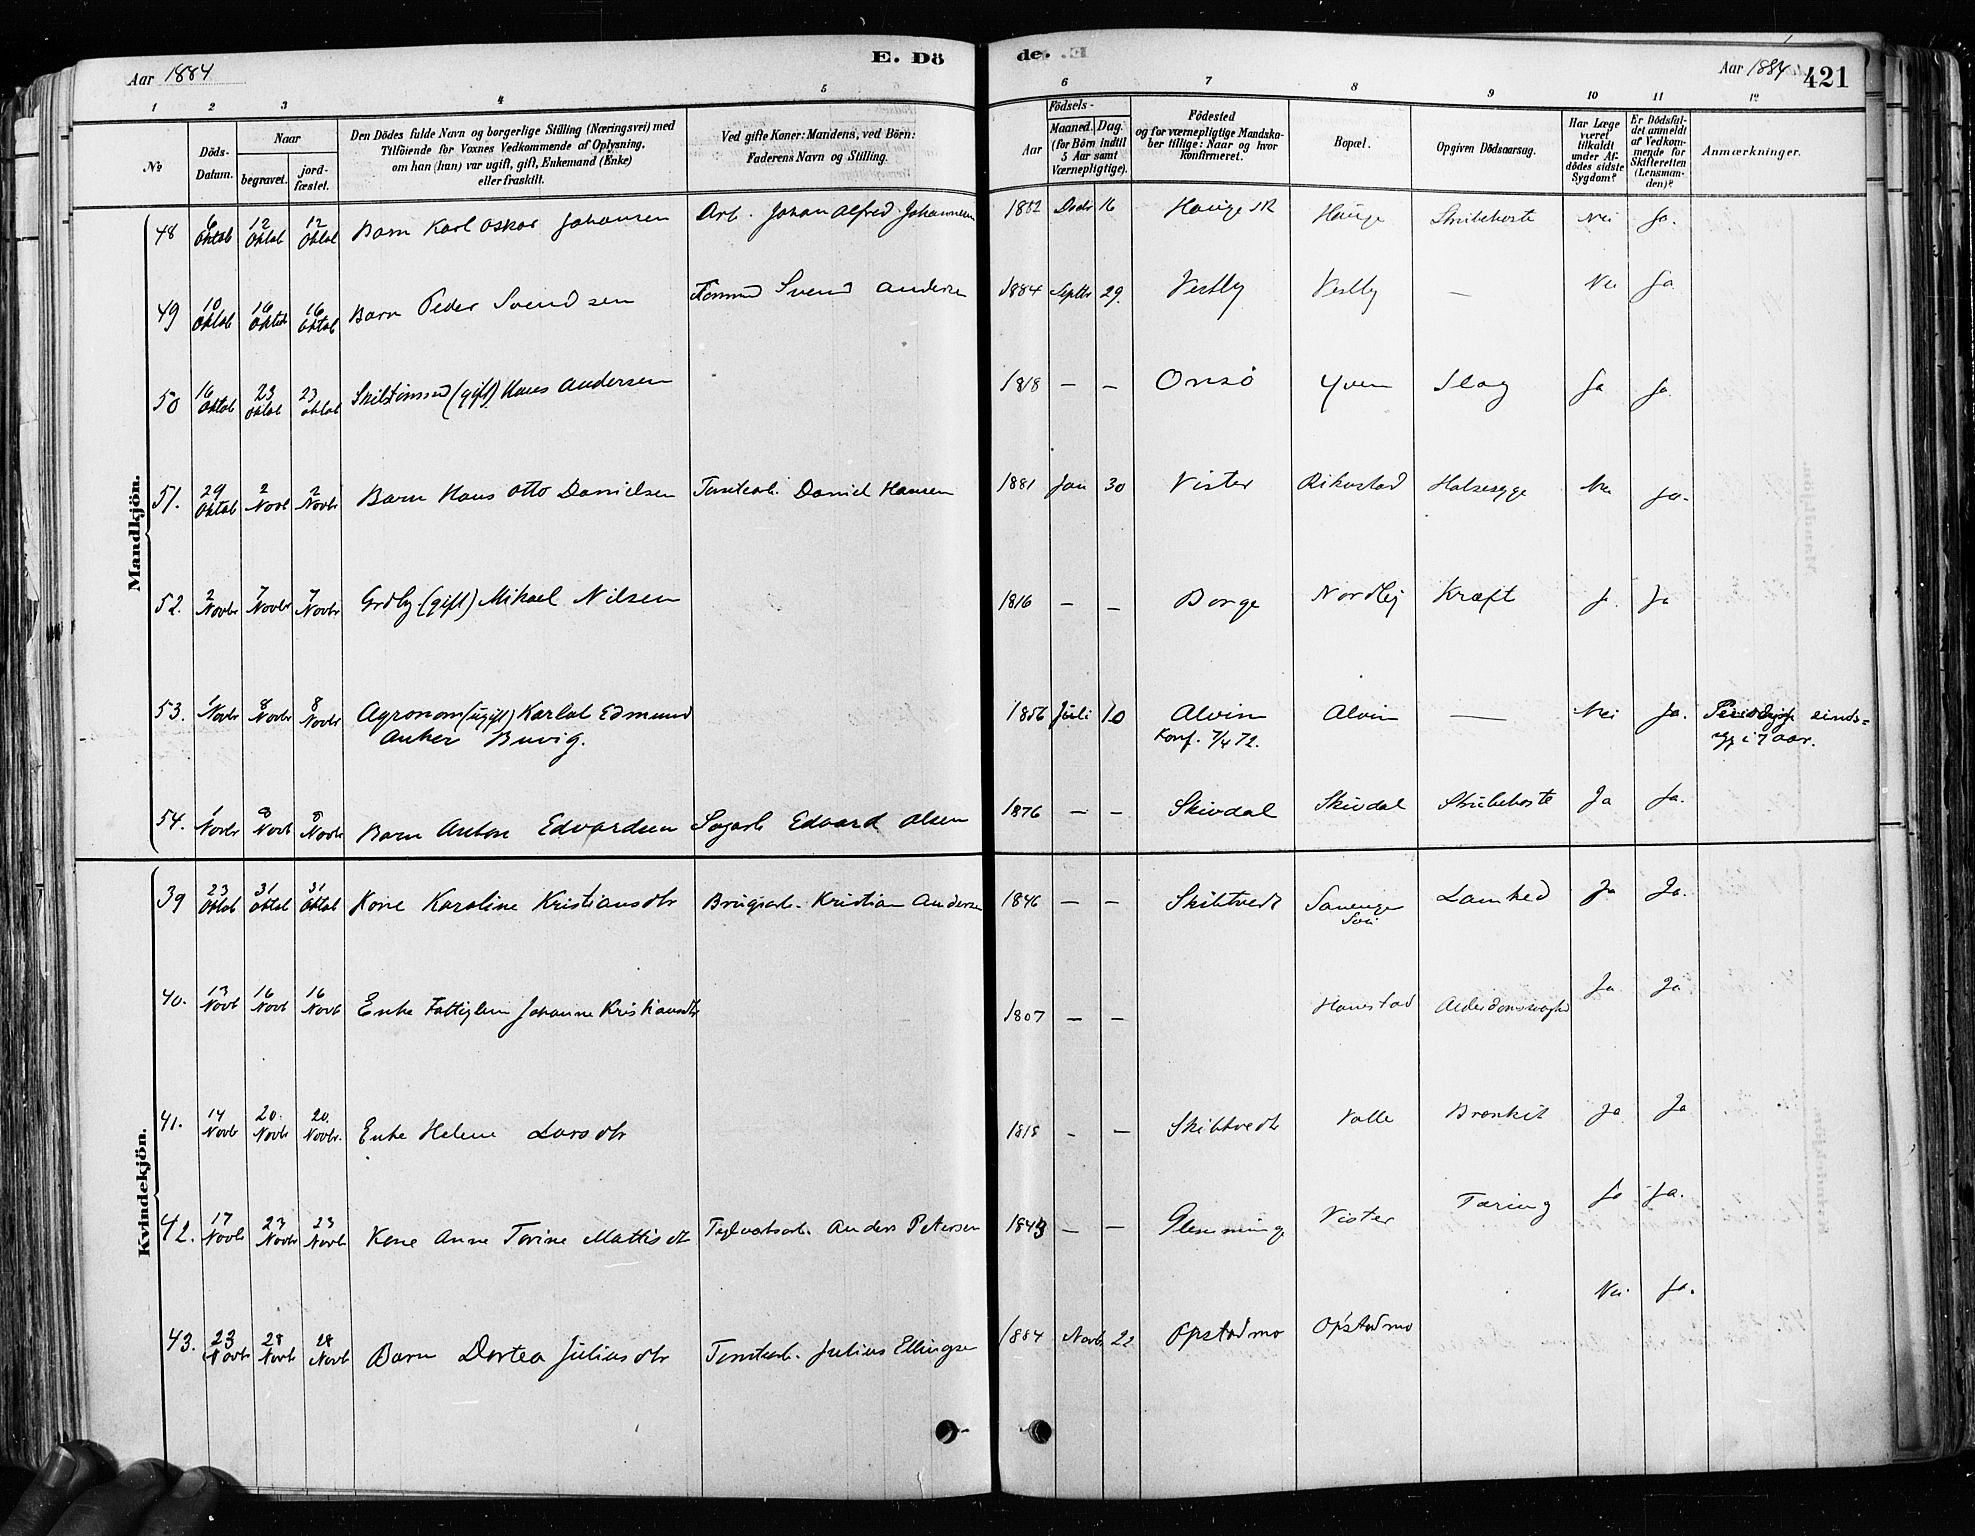 Aar 1884
E. Dö
de.
Aar 1884
421
1 2 3 4 5 6 7 8 9 10 11 12
No
Döds-Datum.
Naar
begravet.
jord-fæstet.
Den Dödes fulde Navn og borgerlige Stilling (Næringsvei) med
Tilföiende for Voxnes Vedkommende af Oplysning.
om han (hun) var ugift, gift, Enkemand (Enke)
eller fraskilt.
Ved gifte Koner: Mandens, ved Börn:
Faderens Navn og Stilling.
Födsels-
Aar
Maaned. Dag.
(for Börn indtil
5 Aar samt
Værnepligtige).
Födested
og for værnepligtige Mandska-
ber tillige: Naar og hvor
konfirmeret.
Bopæl.
Opgiven Dödsaarsag.
Har Læge
været
tilkaldt
under Af-
dödes sidste
Sygdom?
Er Dödsfal-
det anmeldt
af Vedkom-
mende for
Skifteretten
(Lensman-
den)?
Anmærkninger.
Mandkjön.
48 6 Oktob 12 Oktob 12 Oktob Barn Karl Oskar Johansen Arb. Johan Alfred Johannesen 1882 Decbr 16 Hauge Hauge Strubehoste Nei Ja.
49 10 Oktob 16 Oktob 16 Oktob Barn Peder Svendsen Svend Andersen 1884 Septbr 29. Vestby Vestby — Nei Ja
50 16 Oktob 23 Oktob 23 Oktob (gift) Hans Andersen 1818 — — Onsö Yven Slag Ja Ja.
51. 29 Oktob 2 Novb 2 Novbr Barn Hans Otto Danielsen Tomtearb. Daniel Hansen 1881 Jan 30 Vister Rikustad Halsesyge Nei Ja.
52. 2 Novbr 7 Novbr 7 Novbr Grdby (gift) Mikael Nilsen 1816 — — Borge Nordby Kræft J. Ja
53. 1 Novbr 8 Novbr 8 Novbr Agronom (ugift) Karlot Edmund 1856 Juli 10 Alvim Alvim — Nei Ja. Periodisk sinds=
Anker Buvig. Konf. 7/4 72. syg i 7 aar.
54. 1 Novbr 8 Novb 8 Novbr Barn Anton Edvardsen Sagarb Edvard Olsen 1876 — — Skivdal Skivdal Strubehoste Ja Ja.
Kvindekjön.
39 23 Oktob 31 Oktob 31 Oktob Kone Karoline Kristiansdtr Brugsarb. Kristian Andersen 1846 — — Skibtvedt Lamhed Ja Ja.
40. 13 Novb 16 Novb 16 Novb Enke Fattiglem Johanne Kristiansdtr 1807 — — Hanestad Alderdomssvaghed Ja Ja
41. 14 Novbr 20. Novbr 20. Novbr. Enke Helene Larsdtr 1815 - — Skibtvedt Valle Bronkit Ja Ja
42. 17 Novbr 23 Novbr 23 Novbr Kone Anne Torine Mattisdtr Teglverksarb. Anders Petersen 1843 — — Glemminge Vister Tæring Ja Ja.
43. 23 Novbr 28 Novbr 28 Novbr Barn Dortea Juliusdtr Tomtearb. Julius Ellingsen 1884 Novbr 22 Opstadmo Opstadmo Nei. Ja.